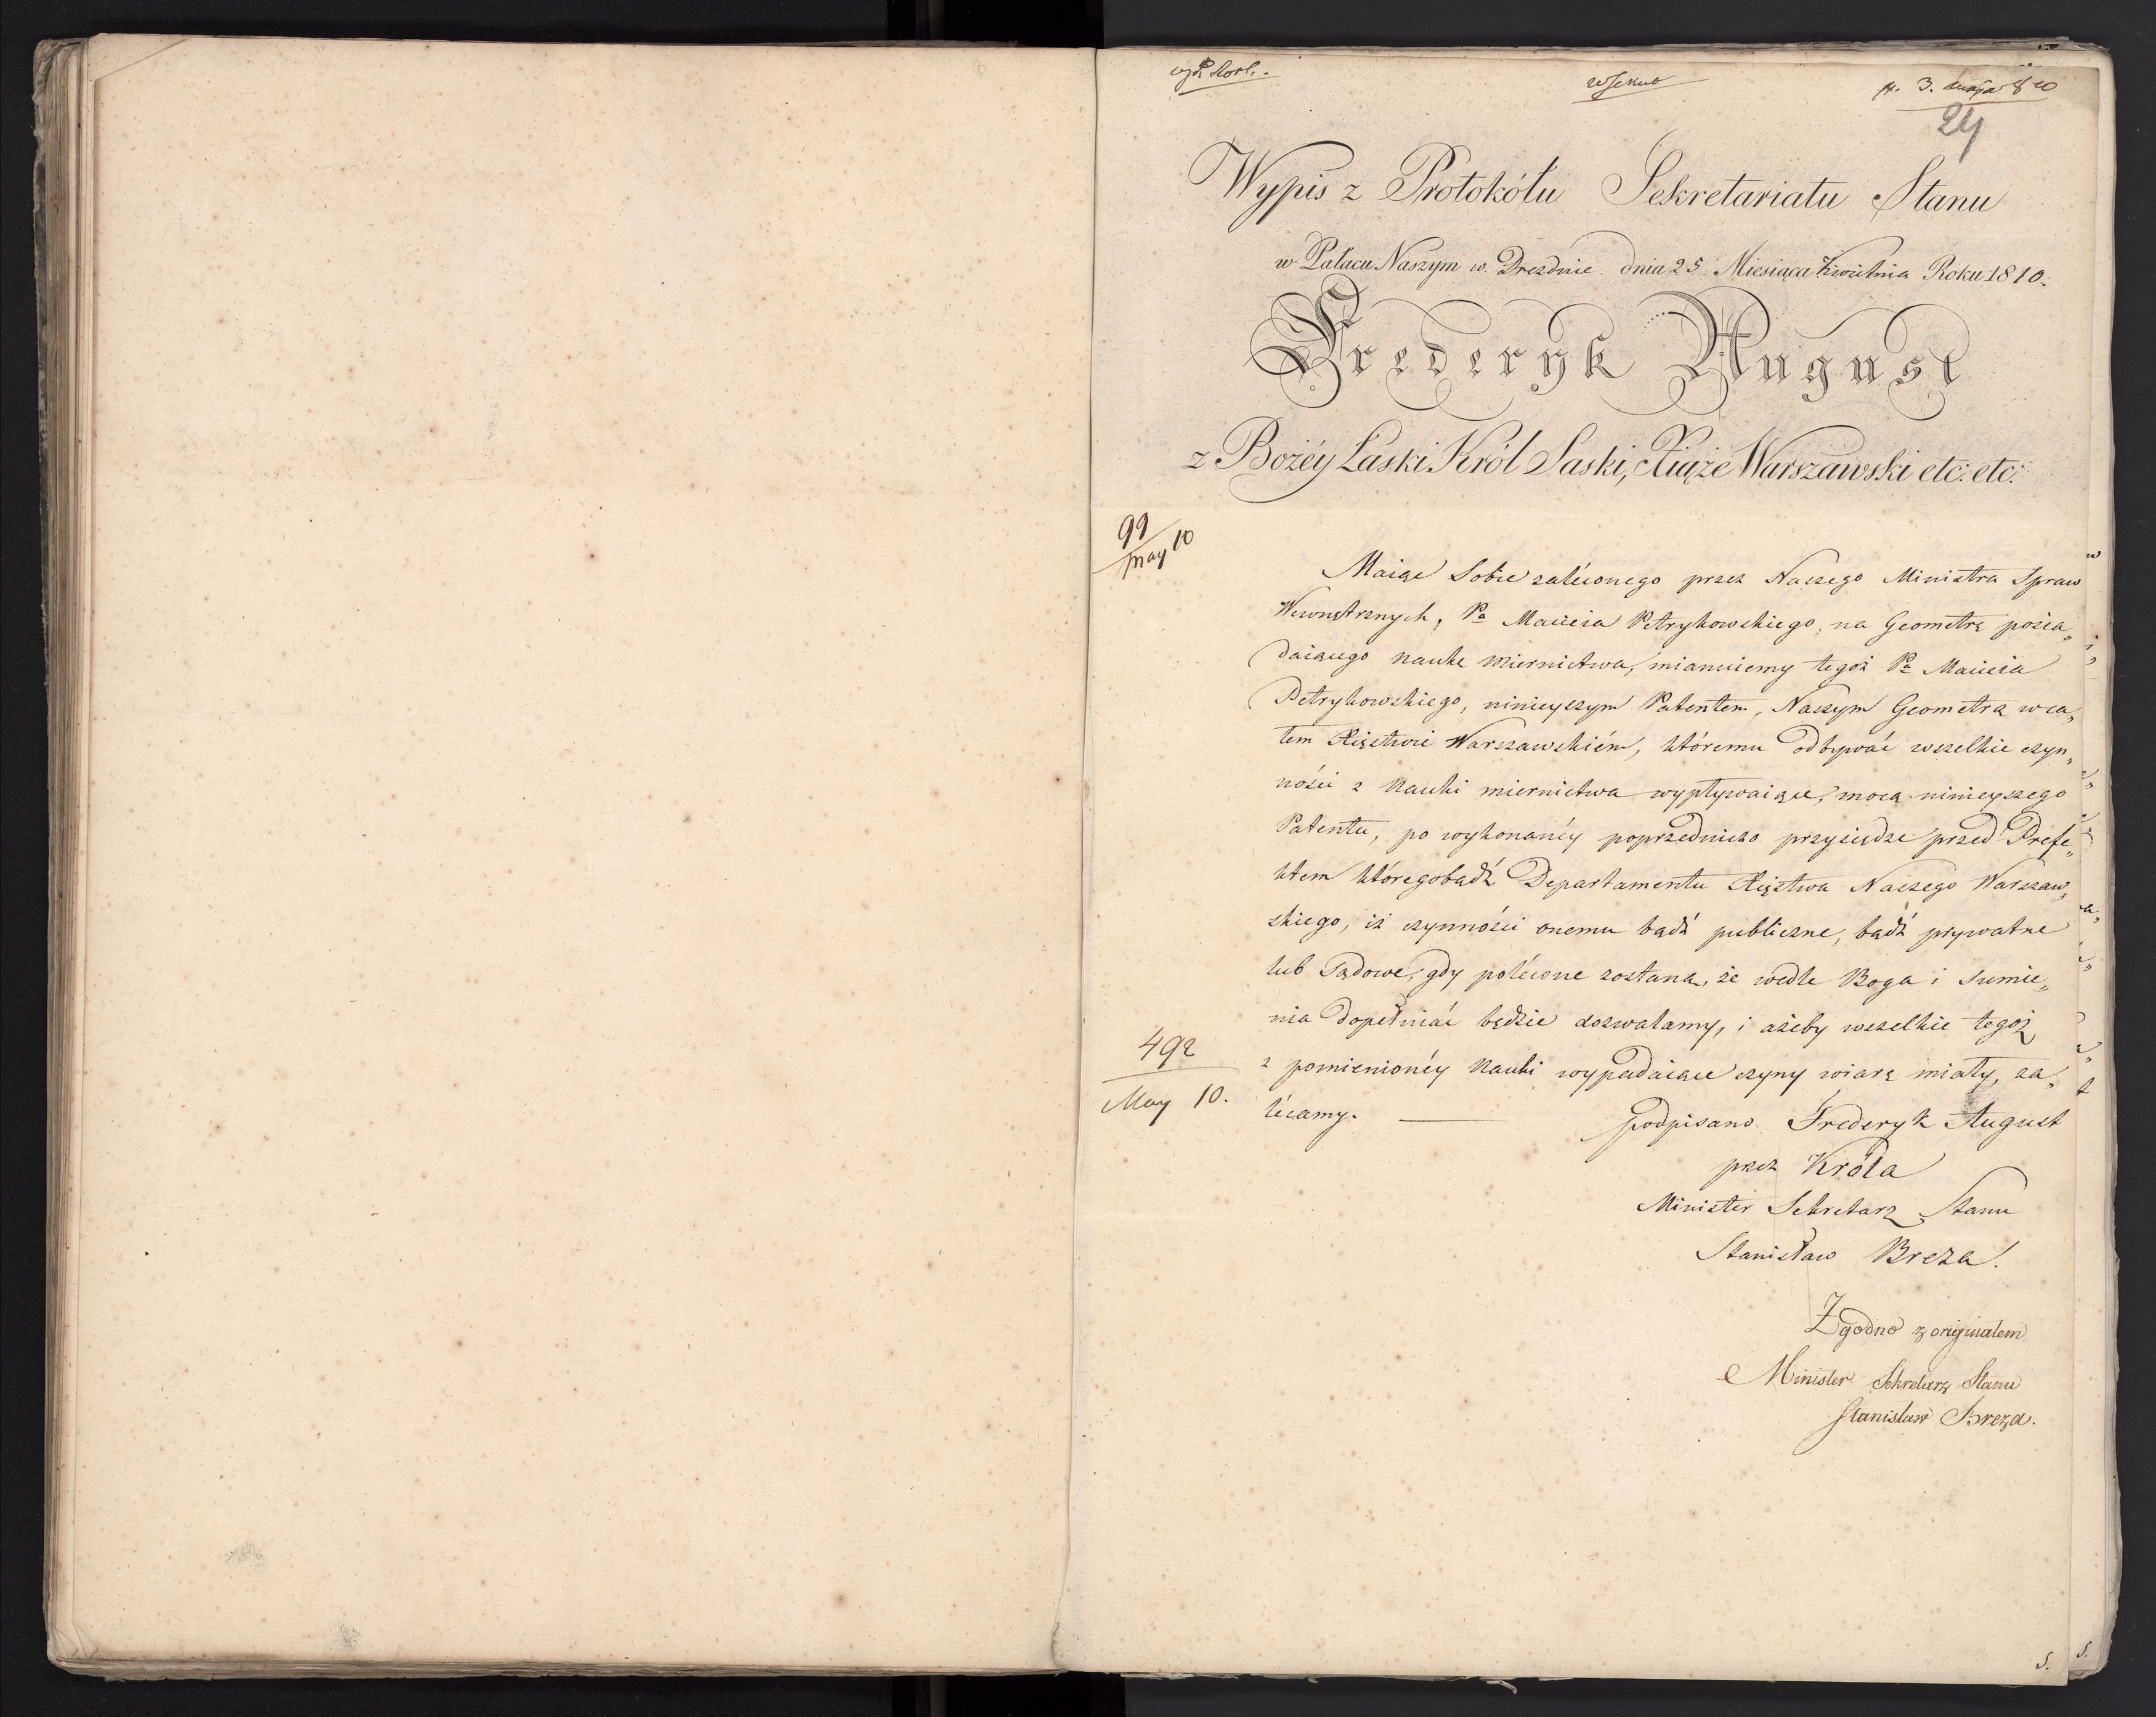 24
Wypis z Protokółu Sekretariatu Stanu
w Pałacu Naszym w Dreznie dnia 25 Miesiąca Kwietnia Roku 1810.
Frederyk August
z Bożéy Łaski Król Saski, Xiąże Warszawski etc: etc:
99
may 10
Maiąc Sobie zaléconego przez Naszego Ministra Spraw
Wewnętrznych, Pa Macieia Petrykowskiego, na Geometrę posia„
daiącego naukę miernictwa, mianuiemy tegoż Pa Macieia
Petrykowskiego, ninieyszym Patentem, Naszym Geometrą w ca„
łem Xięstwie Warszawskiém, któremu odbywać wszelkie czyn„
ności z Nauki miernictwa wypływaiące, mocą ninieyszego
Patentu, po wykonanéy poprzedniczo przysiędze przed Prefe„
ktem któregobądź Departamentu Xięstwa Naszego Warszaw„
skiego, iż czynności onemu bądź publiczne, bądź prywatne
lub Sądowe, gdy polécone zostaną, że wedle Boga i sumie„
nia dopełniać będzie dozwalamy, i ażeby wszelkie tegoż
z pomienionéy Nauki wypadaiące czyny wiarę miały, za„
lécamy.
492
May 10.
podpisano Frederyk August
przez Króla
Minister Sekretarz Stanu
Stanisław Breza.
Zgodno z originałem
Minister Sekretarz Stanu
Stanisław Breza.
S.
S.